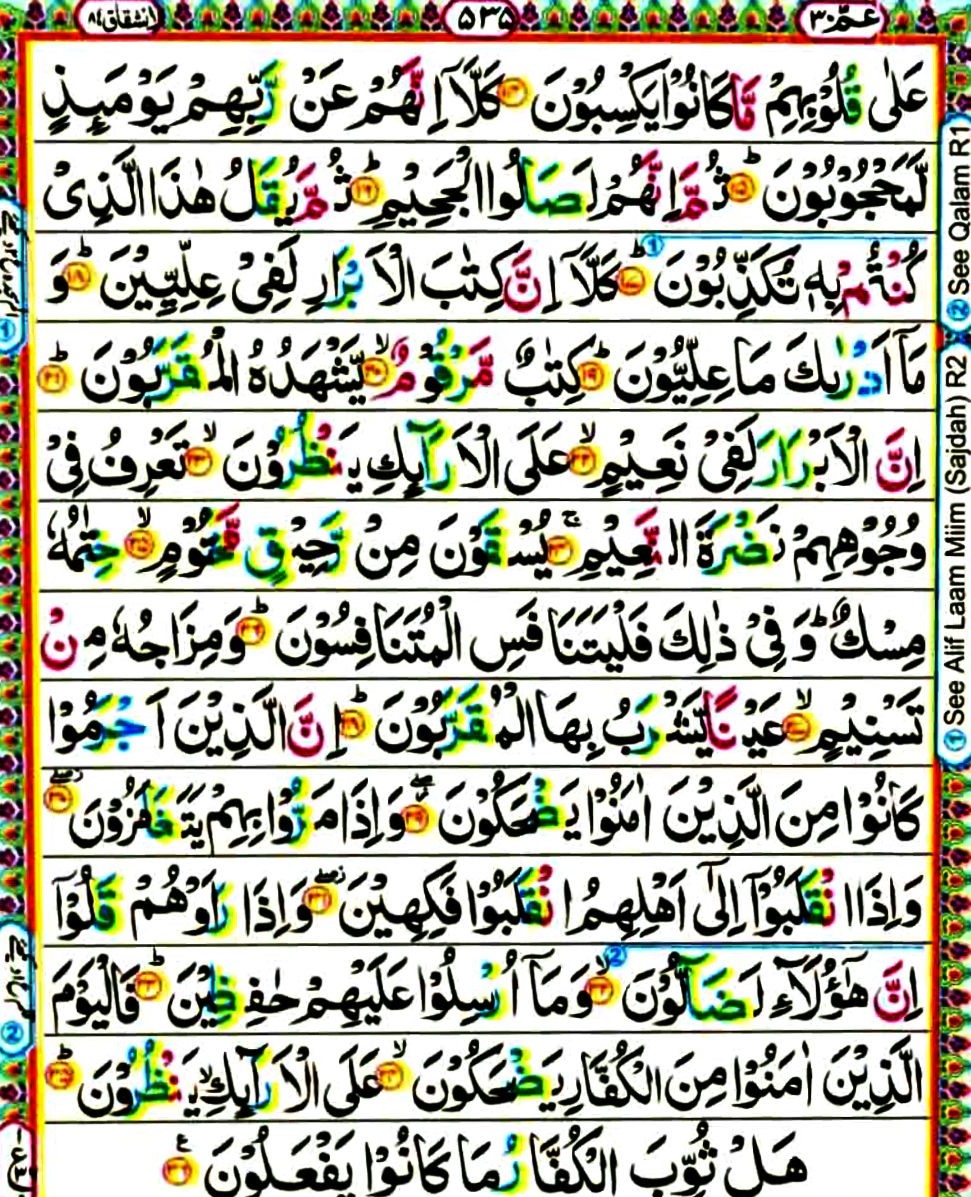 عَمَّ ٣٠
٥٣٥
الانشقاق ٨٤
عَلٰى قُلُوْبِهِمْ مَّا كَانُوْا يَكْسِبُوْنَ ۝١٤ كَلَّاۤ اِنَّهُمْ عَنْ رَّبِّهِمْ يَوْمَىِٕذٍ
لَّمَحْجُوْبُوْنَ ؕ۝١٥ ثُمَّ اِنَّهُمْ لَصَالُوا الْجَحِيْمِ ؕ۝١٦ ثُمَّ يُقَالُ هٰذَا الَّذِىْ
كُنْتُمْ بِهٖ تُكَذِّبُوْنَ ؕ۝١٧ كَلَّاۤ اِنَّ كِتٰبَ الْاَبْرَارِ لَفِىْ عِلِّيِّيْنَ ؕ۝١٨ وَ
مَاۤ اَدْرٰىكَ مَا عِلِّيُّوْنَ ؕ۝١٩ كِتٰبٌ مَّرْقُوْمٌ ۙ۝٢٠ يَّشْهَدُهُ الْمُقَرَّبُوْنَ ؕ۝٢١
اِنَّ الْاَبْرَارَ لَفِىْ نَعِيْمٍ ۙ۝٢٢ عَلَى الْاَرَآىِٕكِ يَنْظُرُوْنَ ۙ۝٢٣ تَعْرِفُ فِىْ
وُجُوْهِهِمْ نَضْرَةَ النَّعِيْمِ ۚ۝٢٤ يُسْقَوْنَ مِنْ رَّحِيْقٍ مَّخْتُوْمٍ ۙ۝٢٥ خِتٰمُهٗ
مِسْكٌ ؕ وَفِىْ ذٰلِكَ فَلْيَتَنَافَسِ الْمُتَنَافِسُوْنَ ؕ۝٢٦ وَمِزَاجُهٗ مِنْ
تَسْنِيْمٍ ۙ۝٢٧ عَيْنًا يَّشْرَبُ بِهَا الْمُقَرَّبُوْنَ ؕ۝٢٨ اِنَّ الَّذِيْنَ اَجْرَمُوْا
كَانُوْا مِنَ الَّذِيْنَ اٰمَنُوْا يَضْحَكُوْنَ ۝٢٩ وَاِذَا مَرُّوْا بِهِمْ يَتَغَامَزُوْنَ ۝٣٠
وَاِذَا انْقَلَبُوْۤا اِلٰٓى اَهْلِهِمُ انْقَلَبُوْا فَكِهِيْنَ ۝٣١ وَاِذَا رَاَوْهُمْ قَالُوْۤا
اِنَّ هٰٓؤُلَآءِ لَضَآلُّوْنَ ۙ۝٣٢ وَمَاۤ اُرْسِلُوْا عَلَيْهِمْ حٰفِظِيْنَ ؕ۝٣٣ فَالْيَوْمَ
الَّذِيْنَ اٰمَنُوْا مِنَ الْكُفَّارِ يَضْحَكُوْنَ ۙ۝٣٤ عَلَى الْاَرَآىِٕكِ ۙ يَنْظُرُوْنَ ؕ۝٣٥
هَلْ ثُوِّبَ الْكُفَّارُ مَا كَانُوْا يَفْعَلُوْنَ ۝٣٦
① See Alif Laam Miim (Sajdah) R2 ② See Qalam R1